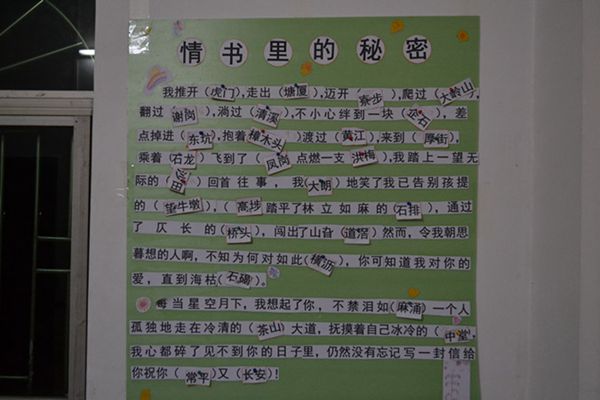 情书里的秘密
我推开(虎门),走出(塘厦),迈开(寮步),爬过(大岭山),
翻过(谢岗),淌过(清溪),不小心绊到一块(企石),差
点掉进(东坑),抱着(樟木头)渡过(黄江),来到(厚街),
乘着(石龙)飞到了(凤岗 点燃一支 洪梅),我踏上一望无
际的(沙田)回首往事,我(大朗)地笑了我已告别孩提
的(望牛墩),(高埗)踏平了林立如麻的(石排),通过
了仄长的(桥头),闯出了山旮(道滘)然而,令我朝思
暮想的人啊,不知为何对如此(横沥),你可知道我对你的
爱,直到海枯(石碣)。
每当星空月下,我想起了你,不禁泪如(麻涌)一个人
孤独地走在冷清的(茶山)大道,抚摸着自己冰冷的(中堂),
我心都碎了见不到你的日子里,仍然没有忘记写一封信给
你祝你(常平)又(长安)!